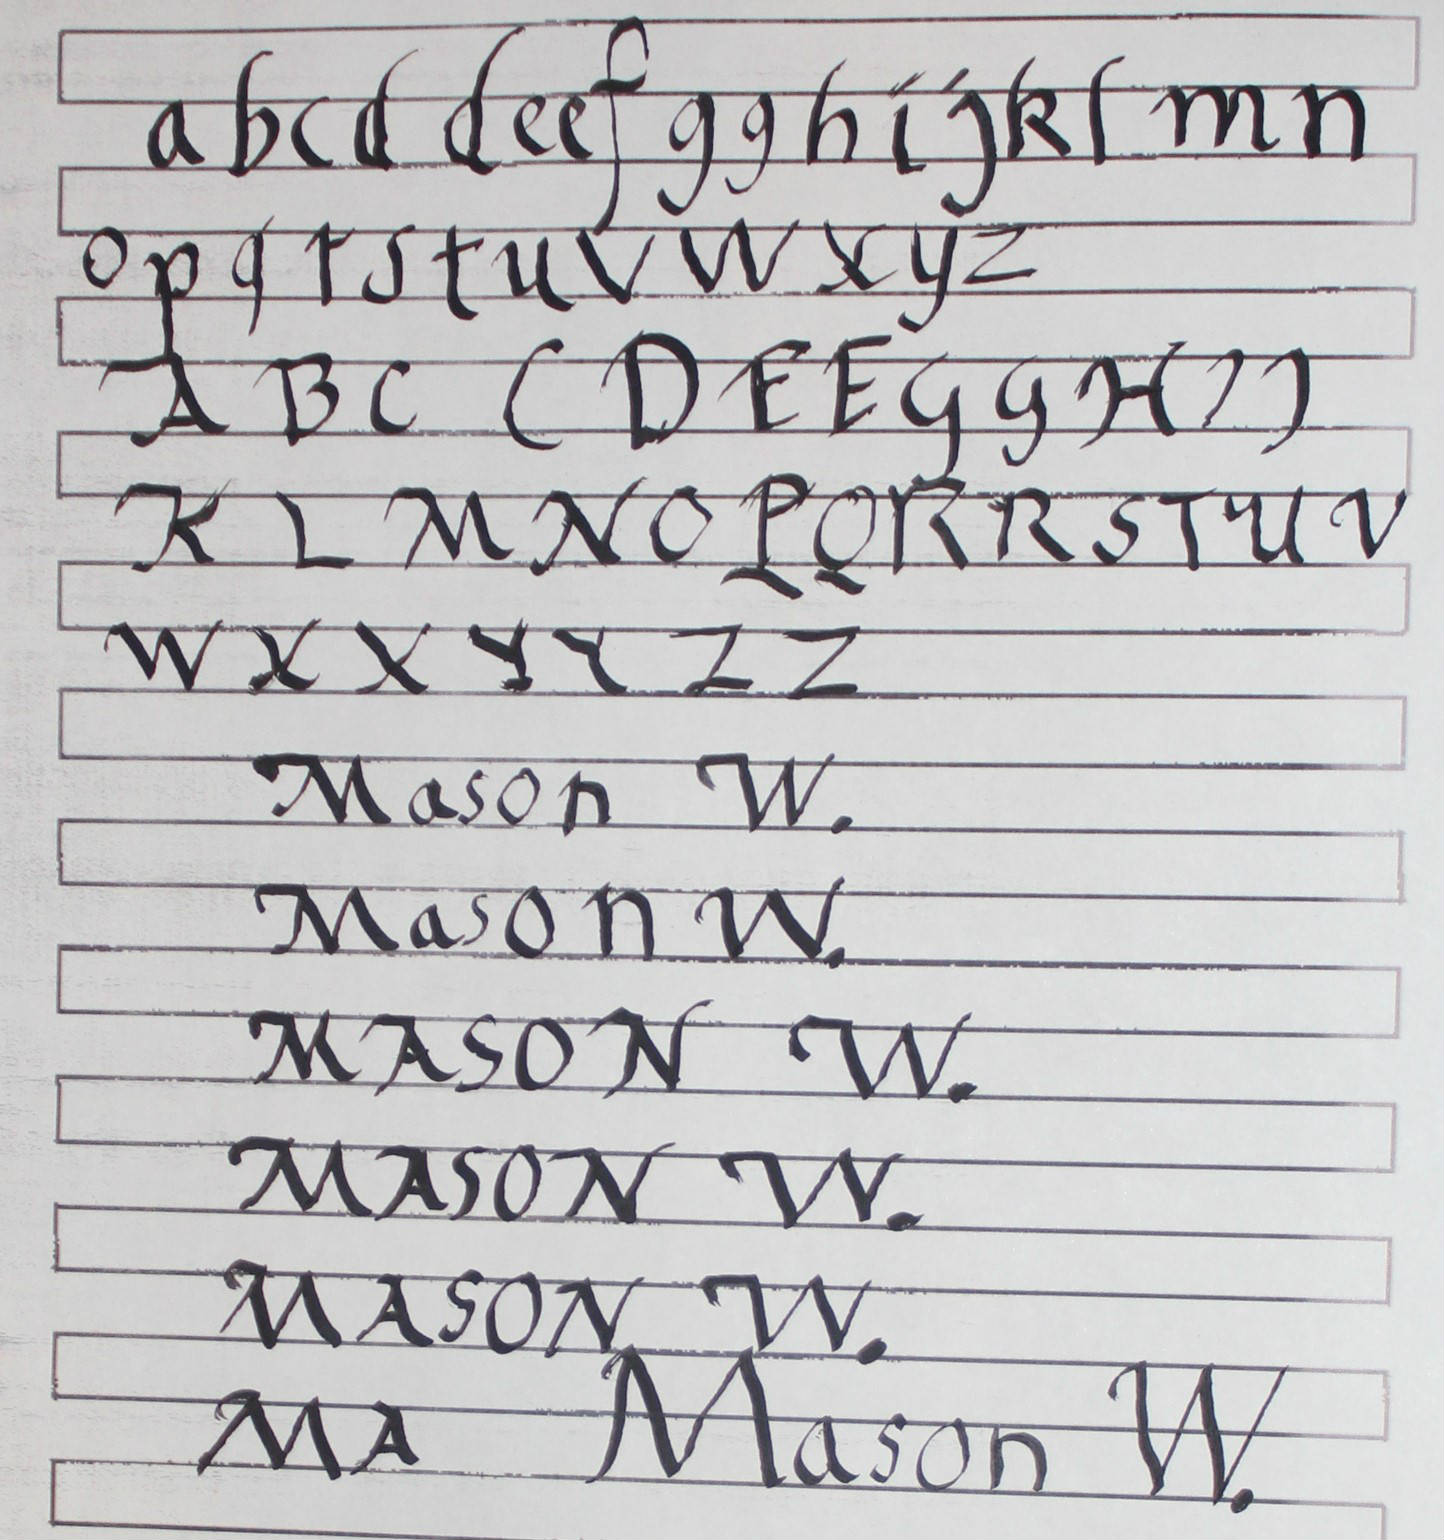 a b c d d e e f g g h i j k l m n
o p q r s t u v w x y z
A B C C D E E G G H I J
K L M N O P Q R R S T U V
W X X Y Y Z Z
Mason W.
Mason W.
MASON W.
MASON W.
MASON W.
MA Mason W.